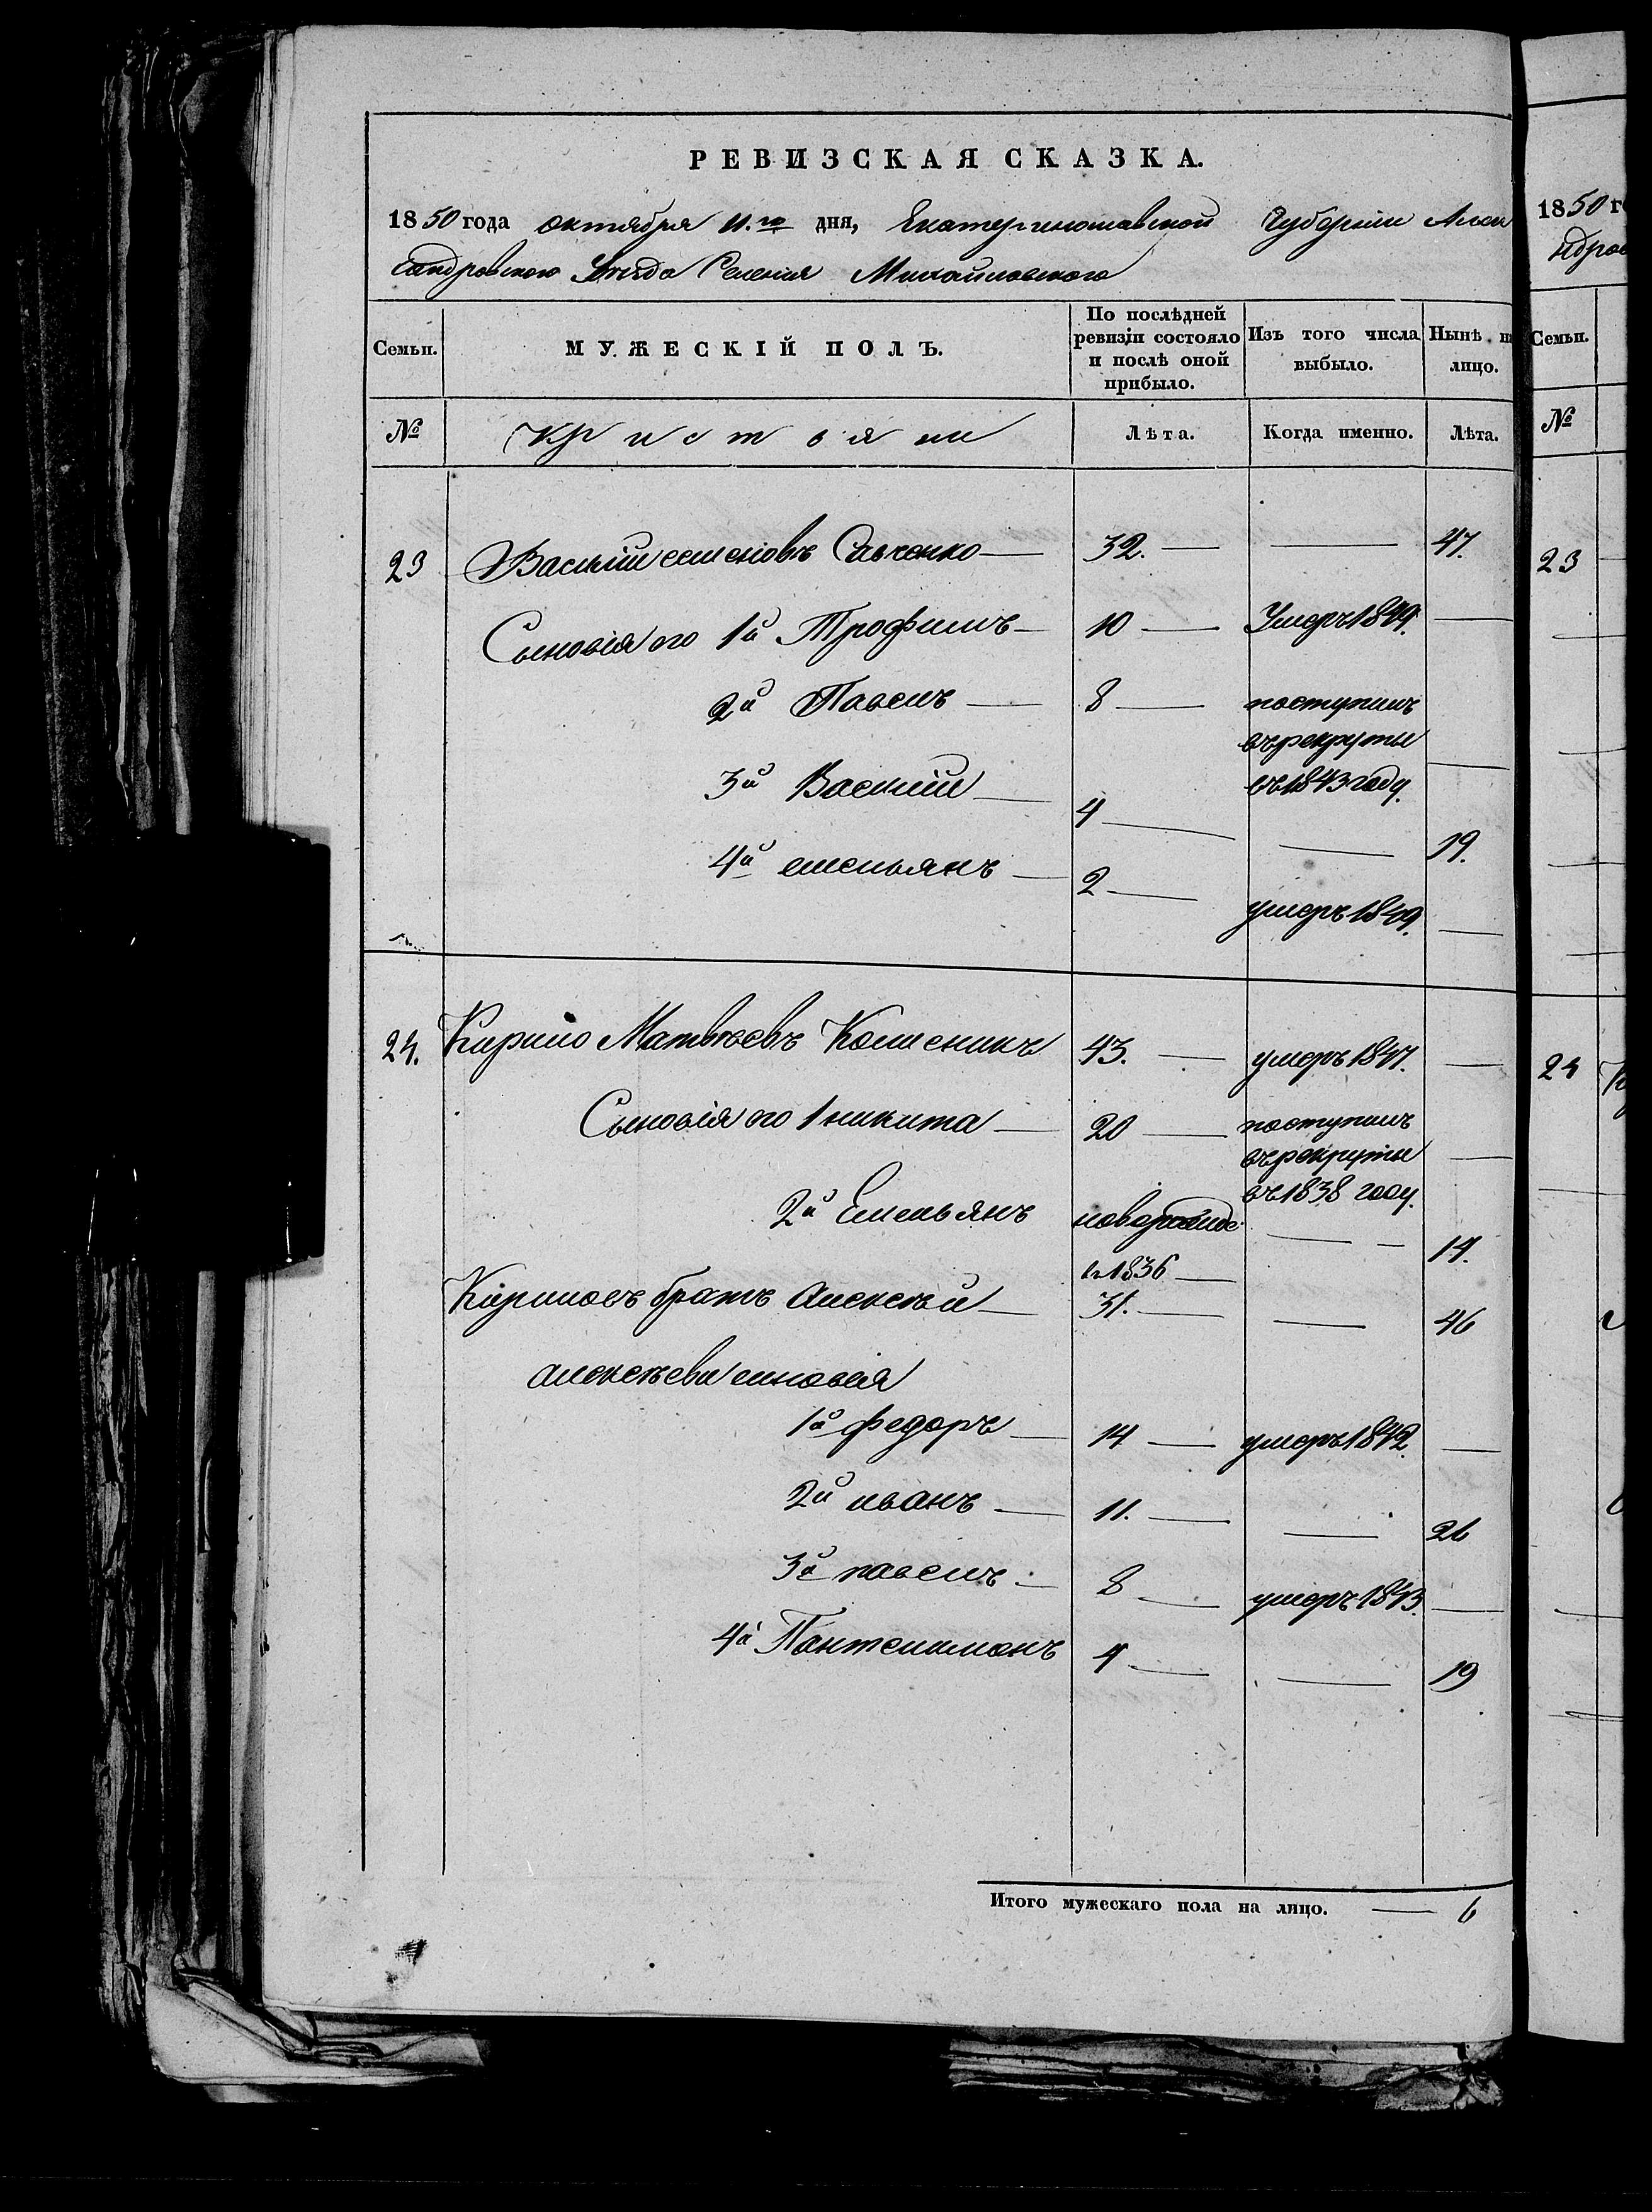 РЕВИЗСКАЯ СКАЗКА.
1850 года октября 11.го дня, Екатеринославской Губерніи Алек
сандровского Уезда Селенія Михайловского
Семьи. МУЖЕСКІЙ ПОЛЪ. По послѣдней ревизіи состояло и послѣ оной прибыло. Изъ того числа выбыло. Нынѣ на лицо.
№ Кристьяни Лѣта. Когда именно. Лѣта.
23 Василій семеновъ Савченко 32. 47.
Сыновія его 1й Трофимъ 10 Умеръ 1849.
2й Павелъ 8 поступилъ
въ рекруты
въ 1843 году.
3й Василій 4 19.
4й емельянъ 2 умеръ 1849.
24. Кирило Матвѣевъ Колесникъ 43. умеръ 1847.
Сыновія его 1 никита 20 поступилъ
въ рекруты
въ 1838 году.
2й Емельянъ
въ 1836 14.
Кириловъ братъ Алексѣй 31. 46
алексѣеви синовія
1й федоръ 14 умеръ 1842.
2й иванъ 11. 26
3й павелъ 8 умеръ 1843.
4й Пантелимонъ 4 19
Итого мужескаго пола на лицо. 6
1850 г
ндров
Семьи.
№
23
24